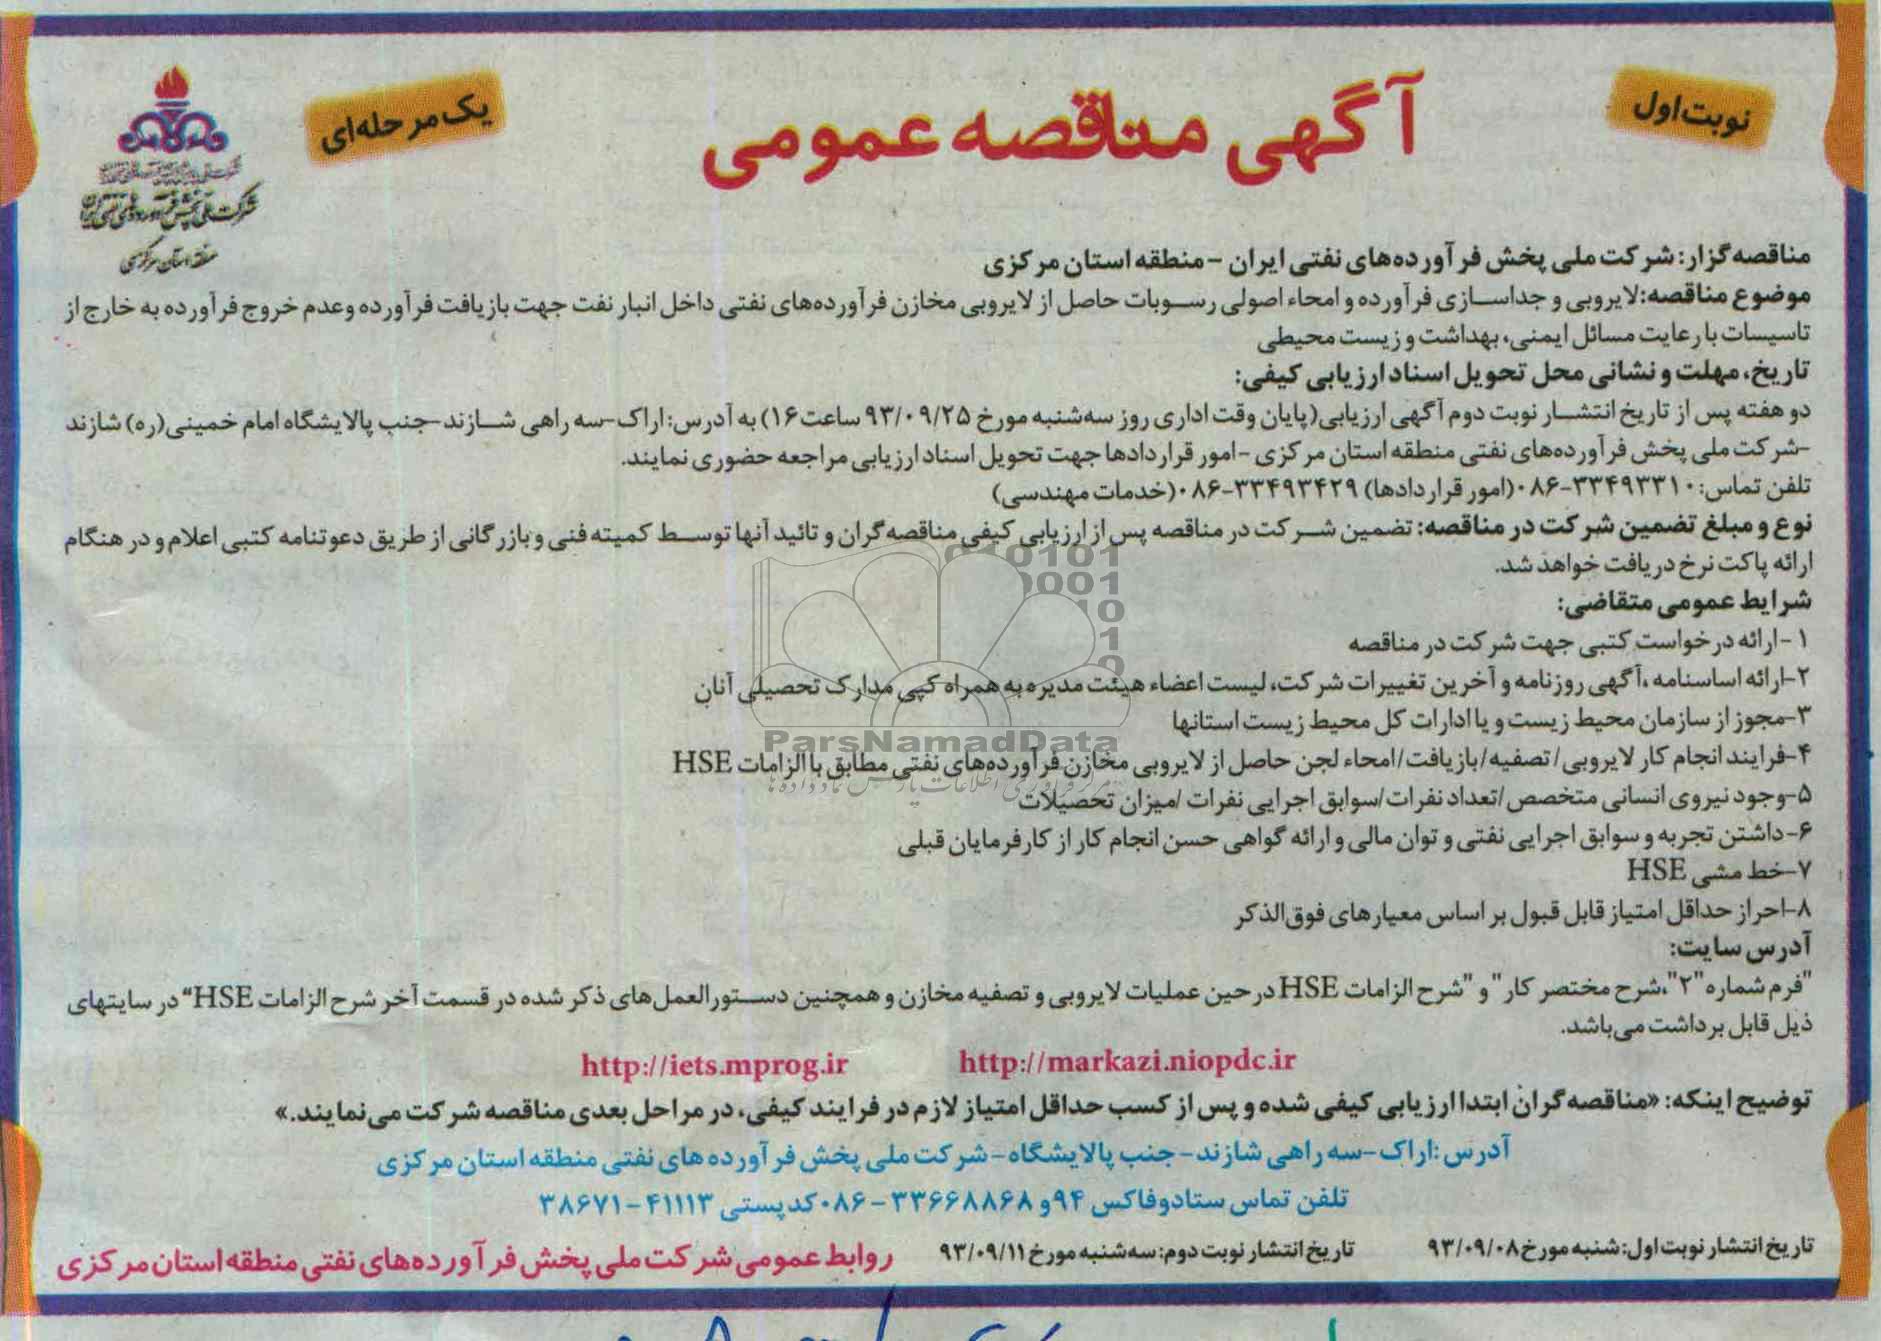 نوبت اول
آگهی مناقصه عمومی
یک مرحله‌ای
شرکت ملی پخش فرآورده‌های نفتی ایران
منطقه استان مرکزی
مناقصه‌گزار: شرکت ملی پخش فرآورده‌های نفتی ایران - منطقه استان مرکزی
موضوع مناقصه: لایروبی و جداسازی فرآورده و امحاء اصولی رسوبات حاصل از لایروبی مخازن فرآورده‌های نفتی داخل انبار نفت جهت بازیافت فرآورده وعدم خروج فرآورده به خارج از
تاسیسات با رعایت مسائل ایمنی، بهداشت و زیست محیطی
تاریخ، مهلت و نشانی محل تحویل اسناد ارزیابی کیفی:
دو هفته پس از تاریخ انتشار نوبت دوم آگهی ارزیابی(پایان وقت اداری روز سه‌شنبه مورخ ۹۳/۰۹/۲۵ ساعت ۱۶) به آدرس: اراک-سه راهی شازند-جنب پالایشگاه امام خمینی(ره) شازند
-شرکت ملی پخش فرآورده‌های نفتی منطقه استان مرکزی - امور قراردادها جهت تحویل اسناد ارزیابی مراجعه حضوری نمایند.
تلفن تماس: ۳۳۴۹۳۳۱۰-۰۸۶(امور قراردادها) ۳۳۴۹۳۴۲۹-۰۸۶(خدمات مهندسی)
نوع و مبلغ تضمین شرکت در مناقصه: تضمین شرکت در مناقصه پس از ارزیابی کیفی مناقصه‌گران و تائید آنها توسط کمیته فنی وبازرگانی از طریق دعوتنامه کتبی اعلام و در هنگام
ارائه پاکت نرخ دریافت خواهد شد.
شرایط عمومی متقاضی:
۱-ارائه درخواست کتبی جهت شرکت در مناقصه
۲-ارائه اساسنامه ،آگهی روزنامه و آخرین تغییرات شرکت، لیست اعضاء هیئت مدیره به همراه کپی مدارک تحصیلی آنان
۳-مجوز از سازمان محیط زیست و یا ادارات کل محیط زیست استانها
۴-فرایند انجام کار لایروبی/تصفیه/بازیافت/امحاء لجن حاصل از لایروبی مخازن فرآورده‌های نفتی مطابق با الزامات HSE
۵-وجود نیروی انسانی متخصص/تعداد نفرات/سوابق اجرایی نفرات /میزان تحصیلات
۶-داشتن تجربه و سوابق اجرایی نفتی و توان مالی و ارائه گواهی حسن انجام کار از کارفرمایان قبلی
۷-خط مشی HSE
۸-احراز حداقل امتیاز قابل قبول بر اساس معیارهای فوق‌الذکر
آدرس سایت:
"فرم شماره "۲"،شرح مختصر کار" و "شرح الزامات HSE در حین عملیات لایروبی و تصفیه مخازن و همچنین دستورالعمل‌های ذکر شده در قسمت آخر شرح الزامات HSE" در سایتهای
ذیل قابل برداشت می‌باشد.
http://iets.mprog.ir http://markazi.niopdc.ir
توضیح اینکه: «مناقصه‌گران ابتدا ارزیابی کیفی شده و پس از کسب حداقل امتیاز لازم در فرایند کیفی، در مراحل بعدی مناقصه شرکت می‌نمایند.»
آدرس :اراک-سه راهی شازند- جنب پالایشگاه- شرکت ملی پخش فرآورده های نفتی منطقه استان مرکزی
تلفن تماس ستادوفاکس ۹۴و ۳۳۶۶۸۸۶۸ - ۰۸۶ کدپستی ۴۱۱۱۳-۳۸۶۷۱
تاریخ انتشار نوبت اول: شنبه مورخ ۹۳/۰۹/۰۸ تاریخ انتشار نوبت دوم: سه‌شنبه مورخ ۹۳/۰۹/۱۱ روابط عمومی شرکت ملی پخش فرآورده‌های نفتی منطقه استان مرکزی
ParsNamadData